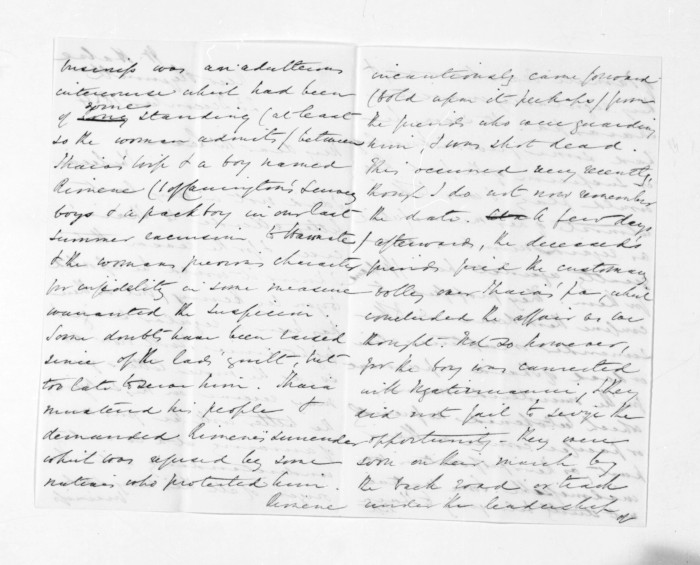 business was an adulterous
intercourse which had been
some
of long standing (at least
so the woman admits) between
Ihaia's wife & a boy named
Rimene (1 of Carrington's Survey
boys & a pack boy in our last
summer excursion to
& the womans previous character
for infidelity in some measure
warranted the suspicion.
Some doubts have been raised
since of the lads guilt but
too late to serve him. Ihaia
mustered his people &
demanded Rimene's surrender
which was refused by some
natives who protected him.
Rimene
incautiously came forward
(told upon it perhaps) from
the friends who were guarding
him, & was shot dead.
This occurred very recently,
though I do not now remember
the date. A few days
afterwards, the deceased's
friends fired the customary
volley over Ihaia's Pa which
concluded the affair as we
thought. Not so however,
for the boy was connected
with Ngatiruanui, & they
did not fail to seize the
opportunity - They were
soon on their march by
the back road or track
under the leadership of